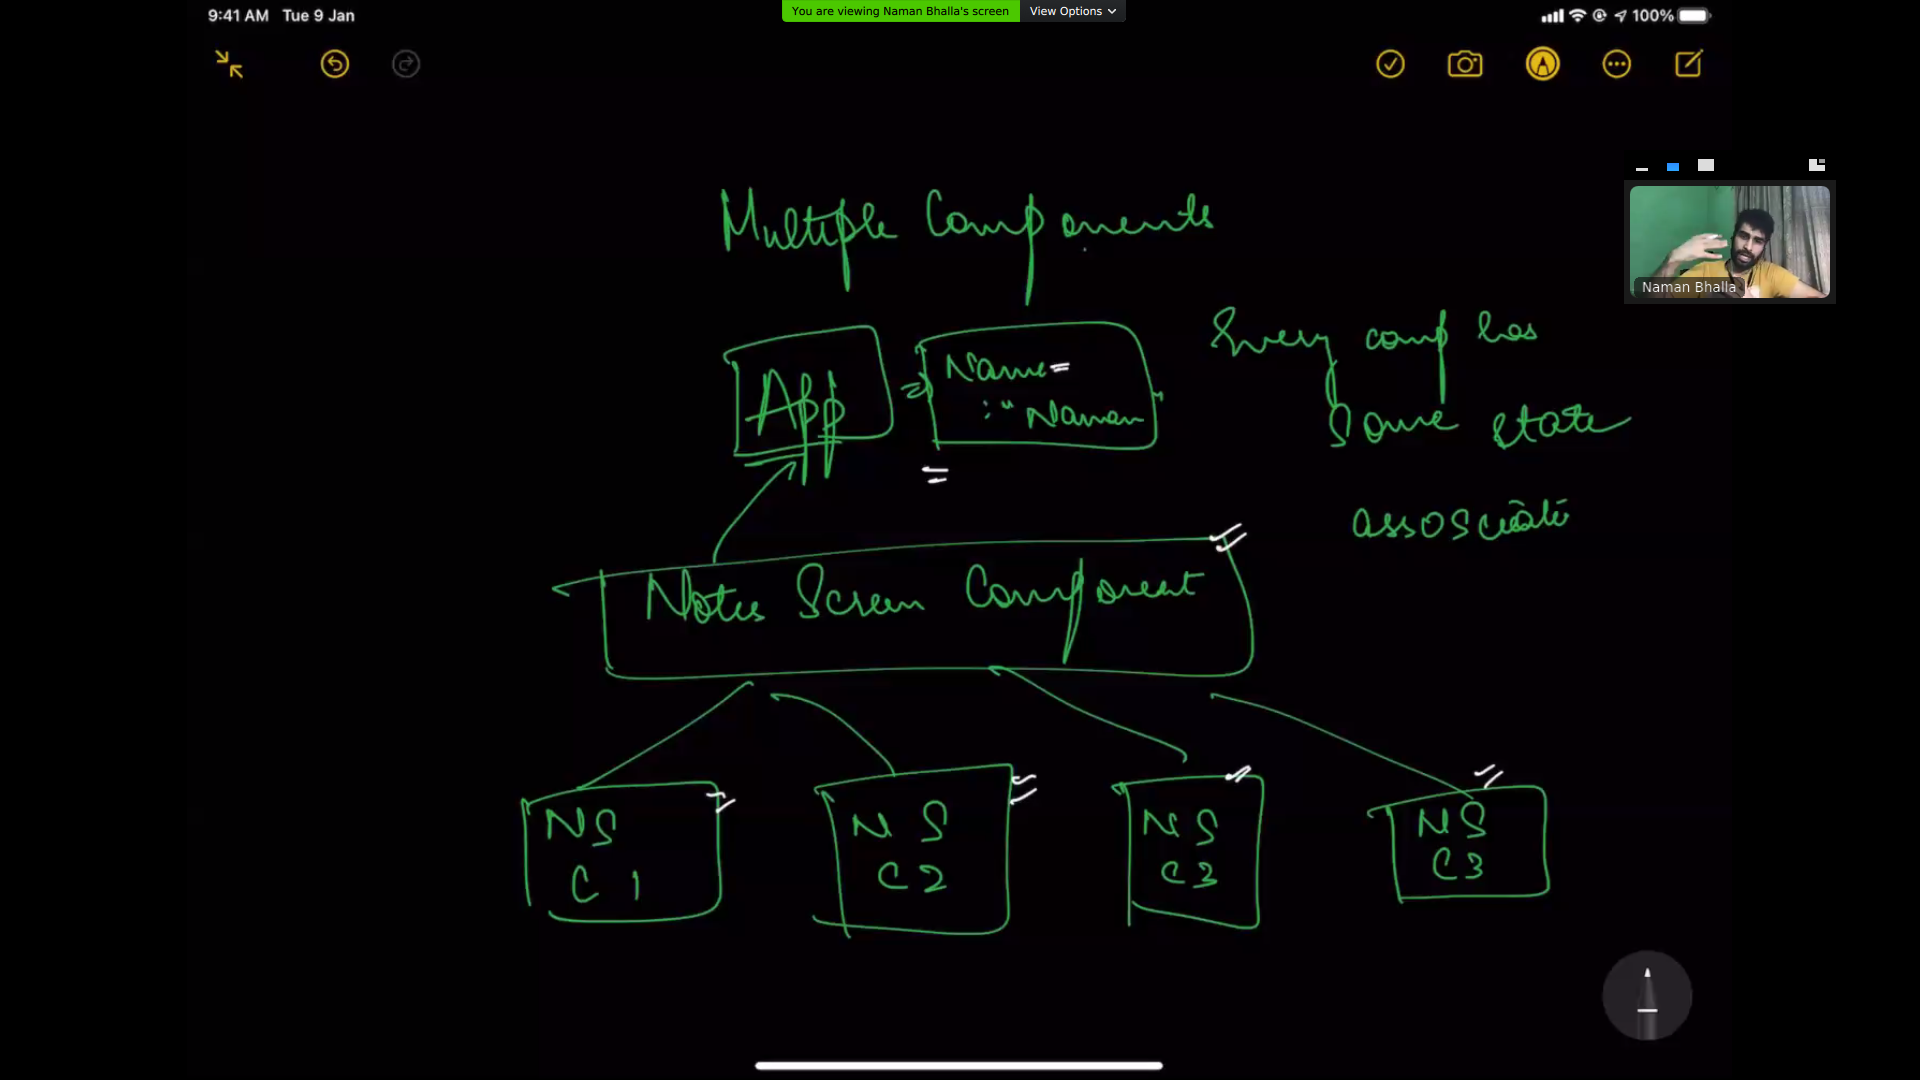 9:41 AM Tue 9 Jan
You are viewing Naman Bhalla's screen View Options
100%
Multiple Components
Naman Bhalla
App
Name
: " Naman
Every comp has
Some state
Notes Screen Component
NS
C 1
N S
C 2
N S
C 3
N S
C 3